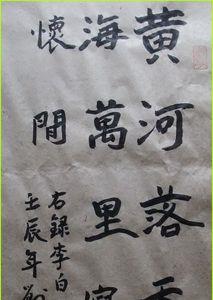 黄河落天
海萬里寫
懷間
右録李白
壬辰年